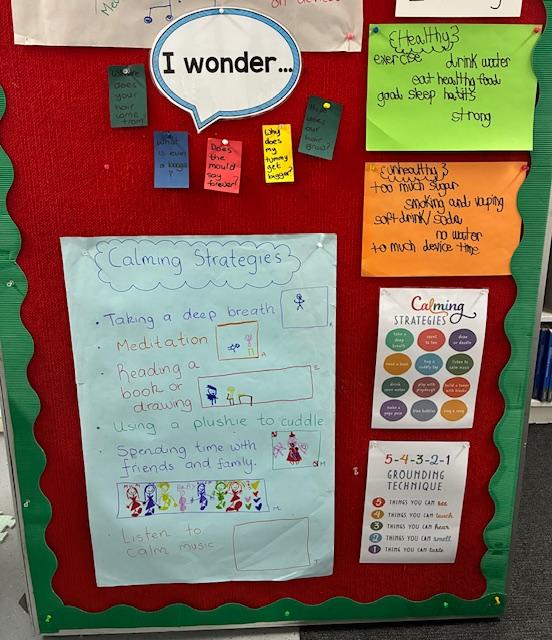 on devices
I wonder...
where does
your
hair
come
from?
what
is even
a booga
?
Does
the
mould
say
forever?
Why
does
my
tummy
get
bigger?
How
does
our
hair
grow?
{Healthy}
exercise drink water
eat healthy food
good sleep habits
strong
{unhealthy}
too much sugar
smoking and vaping
soft drink/soda
no water
to much device time
Calming Strategies
• Taking a deep breath
• Meditation
A
• Reading a
book or
drawing
• Using a plushie to cuddle
• Spending time with
friends and family.
M
BABY
M
• Listen to
calm music
Calming
STRATEGIES
take a
deep
breath
count
to ten
draw
or doodle
read a book
hug a
cuddly toy
listen to
calm music
drink
some water
play with
playdough
build a tower
with blocks
make a
yoga pose
blow bubbles
sing a song
5-4-3-2-1
GROUNDING
TECHNIQUE
5 THINGS YOU CAN see
4 THINGS YOU CAN touch
3 THINGS YOU CAN hear
2 THINGS YOU CAN smell
1 THING YOU CAN taste